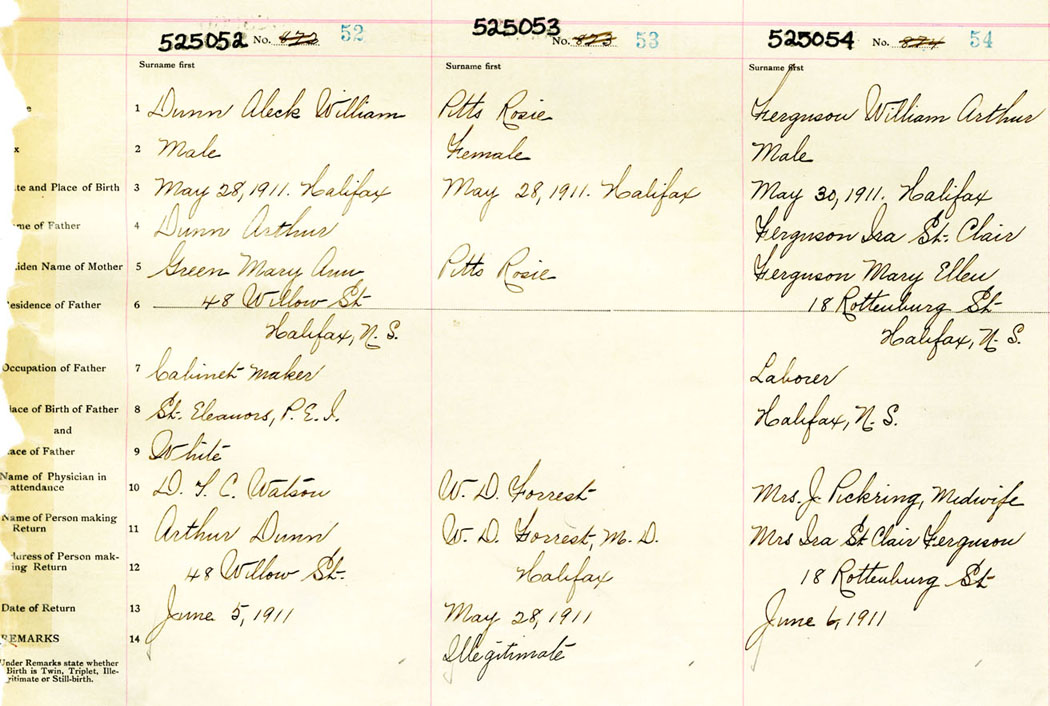 525052 No. 872 52
525053 No. 873 53
525054 No. 874 54
Surname first Surname first Surname first
e 1 Dunn Aleck William Pitts Rosie Ferguson William Arthur
x 2 Male Female Male
te and Place of Birth 3 May 28, 1911. Halifax May 28, 1911. Halifax May 30, 1911. Halifax
me of Father 4 Dunn Arthur Ferguson Ira St. Clair
iden Name of Mother 5 Green Mary Ann Pitts Rosie Ferguson Mary Ellen
esidence of Father 6 48 Willow St 18 Rottenburg St
Halifax, N. S. Halifax, N. S.
Occupation of Father 7 Cabinet maker Laborer
lace of Birth of Father 8 St. Eleanors, P. E. I. Halifax, N. S.
and
ace of Father 9 White
Name of Physician in
attendance 10 D. T. C. Watson W. D. Forrest Mrs. J. Pickring, Midwife
Name of Person making
Return 11 Arthur Dunn W. D. Forrest, M. D. Mrs Ira St Clair Ferguson
ddress of Person mak-
ing Return 12 48 Willow St. Halifax 18 Rottenburg St
Date of Return 13 June 5, 1911 May 28, 1911 June 6, 1911
REMARKS 14 Illegitimate
Under Remarks state whether
Birth is Twin, Triplet, Ille-
gitimate or Still-birth.